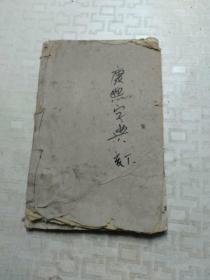 康熙字典
亥下